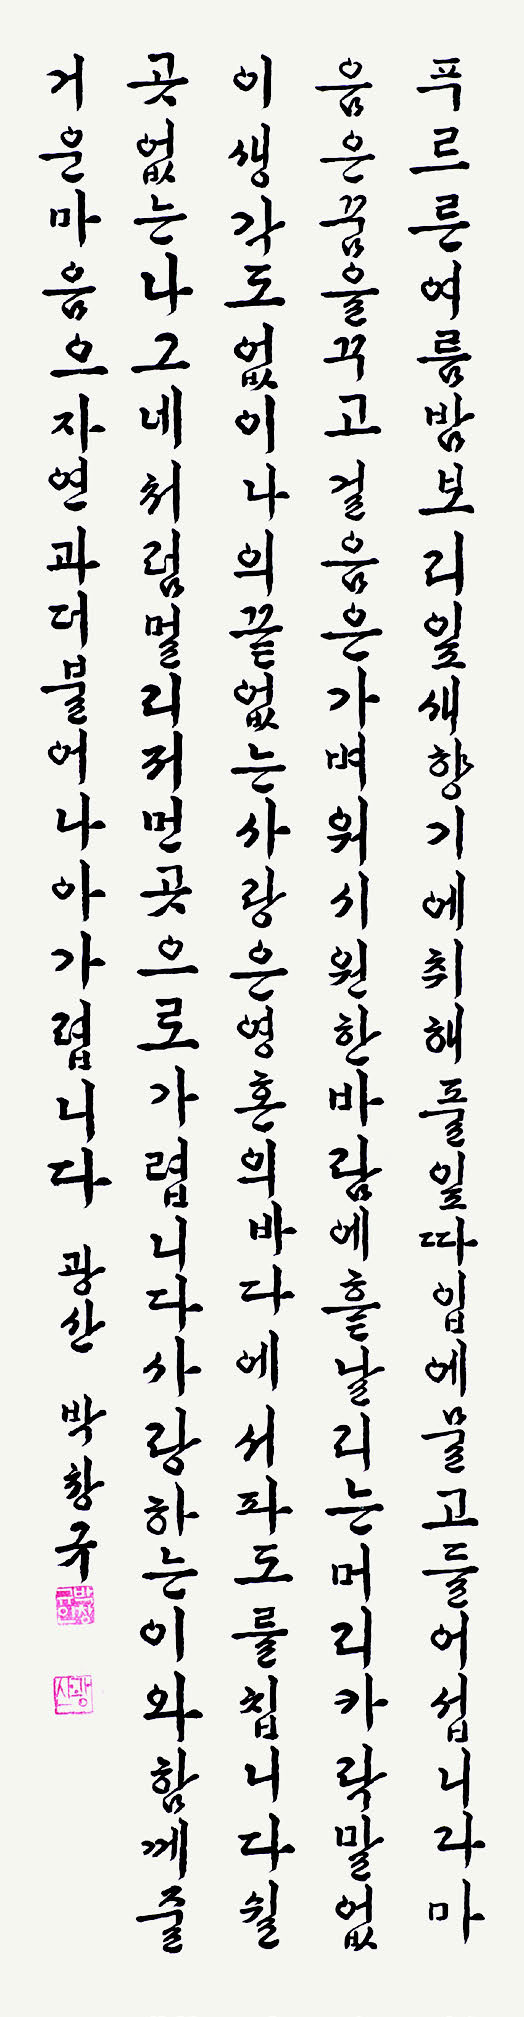 푸르른여름밤보리잎새향기에취해풀잎따입에물고들어섭니라마
음은꿈을꾸고걸음은가벼워시원한바람에흩날리는머리카락말없
이생각도없이나의끝없는사랑은영혼의바다에서파도를칩니다쉴
곳없는나그네처럼멀리저먼곳으로가렵니다사랑하는이와함께줄
거운마음으자연과더불어나아가렵니다 광산 박황규
광산